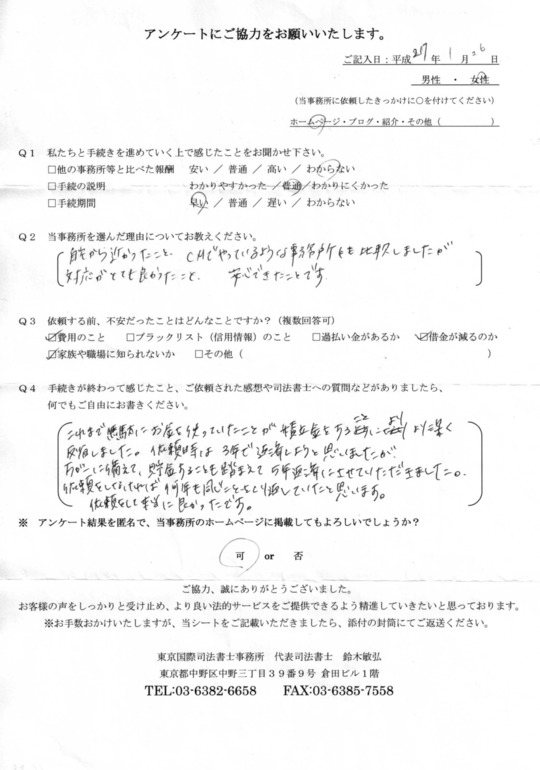 アンケートにご協力をお願いいたします。
ご記入日：平成27年1月26日
男性 ・ 女性
（当事務所に依頼したきっかけに○を付けてください）
ホームページ・ブログ・紹介・その他（ ）
Q1 私たちと手続きを進めていく上で感じたことをお聞かせ下さい。
□他の事務所等と比べた報酬 安い ／ 普通 ／ 高い ／ わからない
□手続の説明 わかりやすかった ／ 普通 ／ わかりにくかった
□手続期間 早い ／ 普通 ／ 遅い ／ わからない
Q2 当事務所を選んだ理由についてお教えください。
自宅から近かったこと、CMでやっているような事務所とも比較しましたが
対応がとても良かったこと、安心できたことです。
Q3 依頼する前、不安だったことはどんなことですか？（複数回答可）
☑費用のこと □ブラックリスト（信用情報）のこと □過払い金があるか ☑借金が減るのか
☑家族や職場に知られないか □その他（ ）
Q4 手続きが終わって感じたこと、ご依頼された感想や司法書士への質問などがありましたら、
何でもご自由にお書きください。
これまで無駄にお金を使っていたことが積立金をすることにより より深く
反省しました。依頼時は3年で返済しようと思いましたが、
万が一に備えて、貯金することも踏まえて5年返済にさせていただきました。
依頼をしなければ何年も同じことをくり返していたと思います。
依頼をして本当に良かったです。
※ アンケート結果を匿名で、当事務所のホームページに掲載してもよろしいでしょうか？
可 or 否
ご協力、誠にありがとうございました。
お客様の声をしっかりと受け止め、より良い法的サービスをご提供できるよう精進していきたいと思っております。
※お手数おかけいたしますが、当シートをご記載いただきましたら、添付の封筒にてご返送ください。
東京国際司法書士事務所 代表司法書士 鈴木敏弘
東京都中野区中野三丁目39番9号 倉田ビル1階
TEL:03-6382-6658 FAX:03-6385-7558